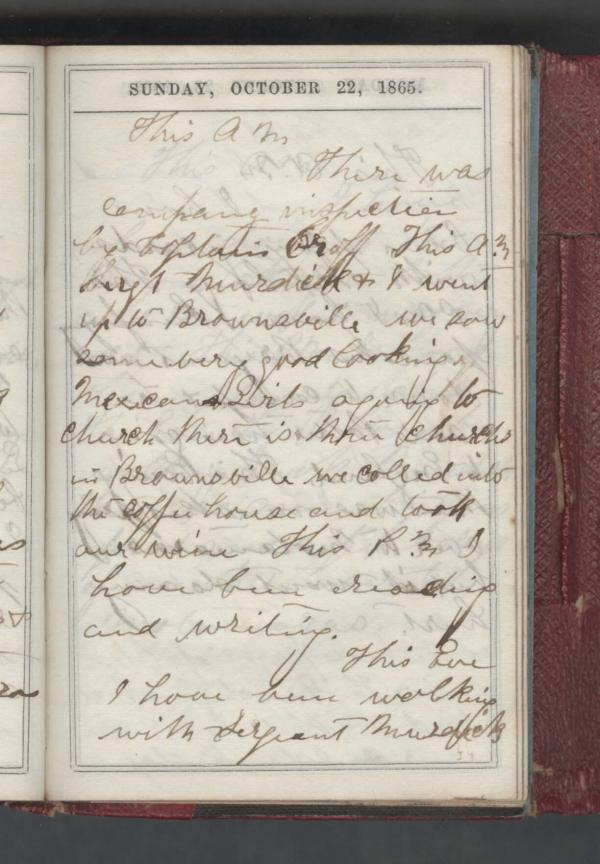 SUNDAY, OCTOBER 22, 1865.
This A M
There was
company inspection
by Captain Groff This A.M
Sergt Murdick & I went
up to Brownsville we saw
some very good looking
Mexican Girls agoing to
church there is three churches
in Brownsville we called into
the coffee house and took
our wine This P.M I
have been reading
and writing.
This Eve
I have been walking
with Sergeant Murdick